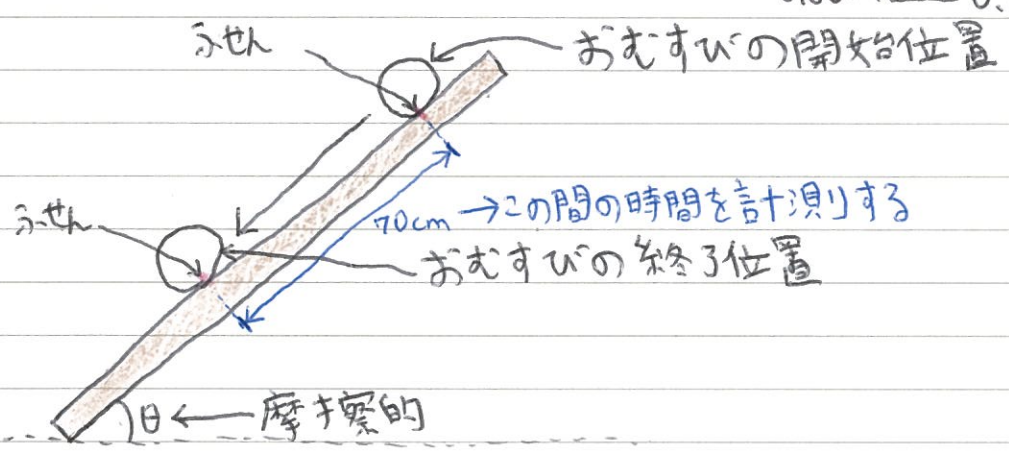 ふせん
おむすびの開始位置
ふせん
70cm→この間の時間を計測りする
おむすびの終了位置
θ←摩擦的